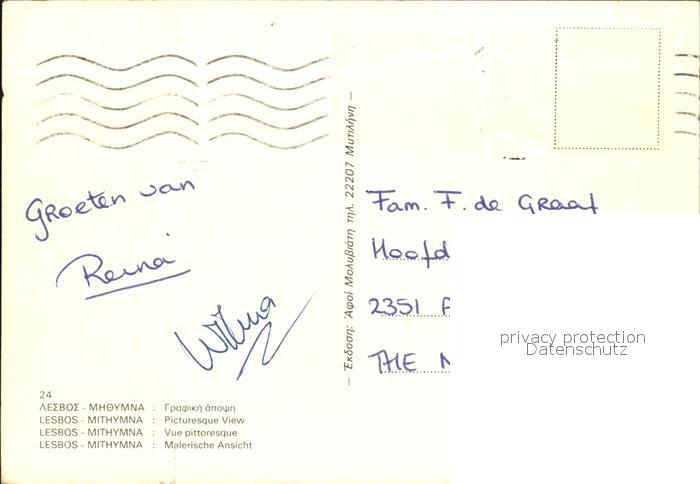 Groeten van
Reina
Wilma
24
ΛΕΣΒΟΣ - ΜΗΘΥΜΝΑ : Γραφική άποψη
LESBOS - MITHYMNA : Picturesque View
LESBOS - MITHYMNA : Vue pittoresque
LESBOS - MITHYMNA : Malerische Ansicht
— Έκδοση: Αφοί Μολυβιάτη τηλ. 22207 Μυτιλήνη —
Fam. F. de Graaf
Hoofd
2351
THE
privacy protection
Datenschutz